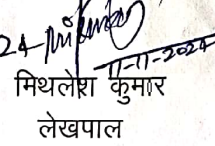 24-
11-11-2024
मिथलेश कुमार
लेखपाल